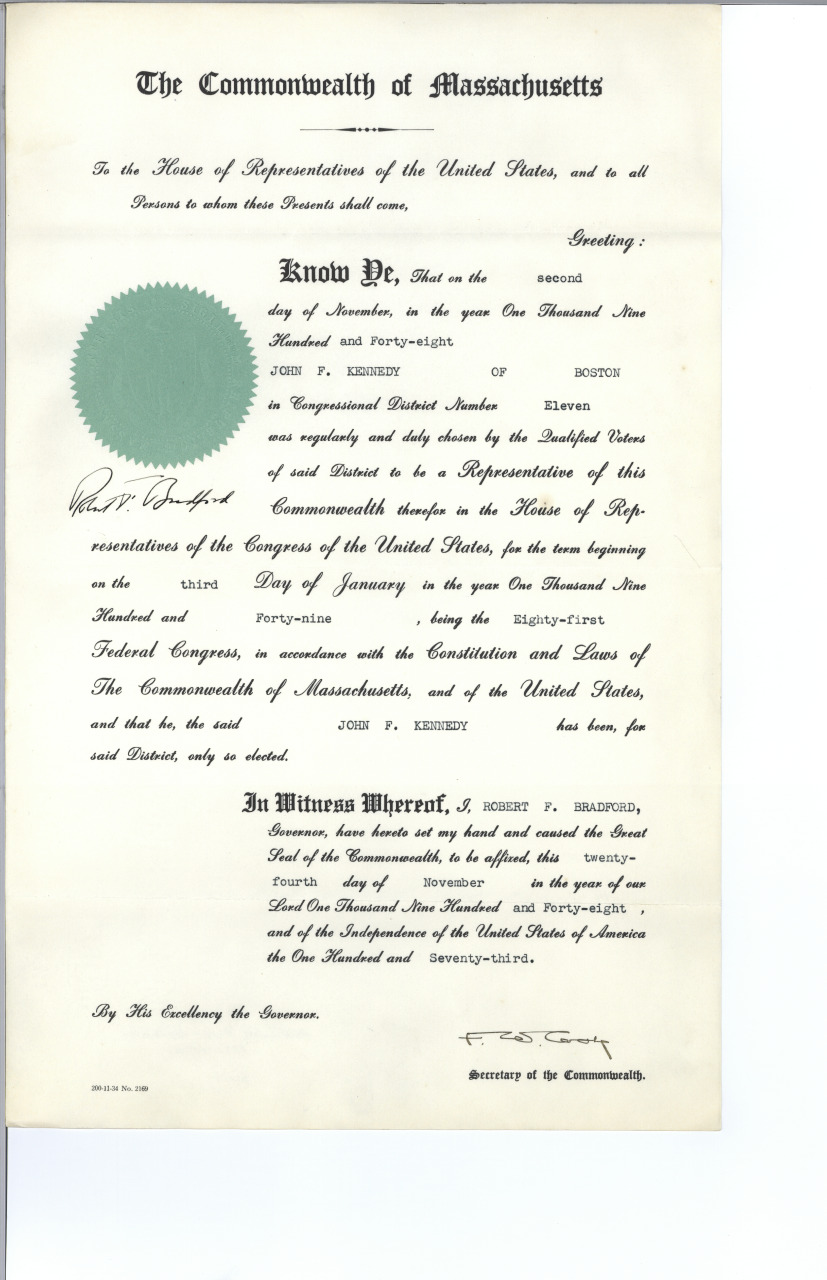 The Commonwealth of Massachusetts
To the House of Representatives of the United States, and to all
Persons to whom these Presents shall come,
Greeting :
Know Ye, That on the second
day of November, in the year One Thousand Nine
Hundred and Forty-eight
JOHN F. KENNEDY OF BOSTON
in Congressional District Number Eleven
was regularly and duly chosen by the Qualified Voters
of said District to be a Representative of this
Commonwealth therefor in the House of Rep-
resentatives of the Congress of the United States, for the term beginning
on the third Day of January in the year One Thousand Nine
Hundred and Forty-nine , being the Eighty-first
Federal Congress, in accordance with the Constitution and Laws of
The Commonwealth of Massachusetts, and of the United States,
and that he, the said JOHN F. KENNEDY has been, for
said District, only so elected.
Robert F. Bradford
In Witness Whereof, I, ROBERT F. BRADFORD,
Governor, have hereto set my hand and caused the Great
Seal of the Commonwealth, to be affixed, this twenty-
fourth day of November in the year of our
Lord One Thousand Nine Hundred and Forty-eight ,
and of the Independence of the United States of America
the One Hundred and Seventy-third.
By His Excellency the Governor.
F. W. Cook
Secretary of the Commonwealth.
200-11-34 No. 2169